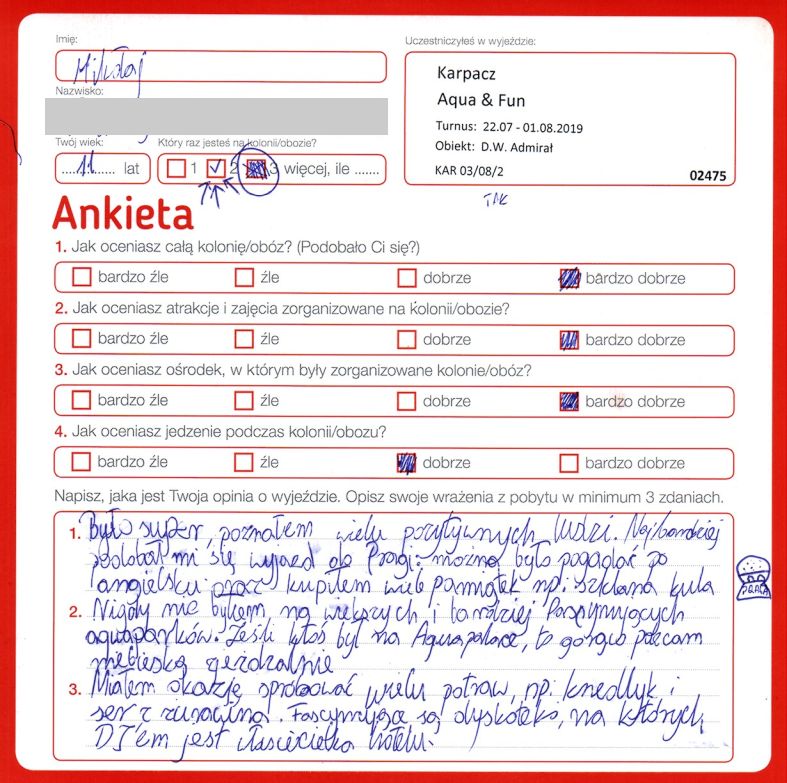 Imię:
Mikołaj
Nazwisko:
Twój wiek:
11 lat
Który raz jesteś na kolonii/obozie?
1 2 3 więcej, ile .......
Uczestniczyłeś w wyjeździe:
Karpacz
Aqua & Fun
Turnus: 22.07 - 01.08.2019
Obiekt: D.W. Admirał
KAR 03/08/2 02475
TAK
Ankieta
1. Jak oceniasz całą kolonię/obóz? (Podobało Ci się?)
bardzo źle źle dobrze bardzo dobrze
2. Jak oceniasz atrakcje i zajęcia zorganizowane na kolonii/obozie?
bardzo źle źle dobrze bardzo dobrze
3. Jak oceniasz ośrodek, w którym były zorganizowane kolonie/obóz?
bardzo źle źle dobrze bardzo dobrze
4. Jak oceniasz jedzenie podczas kolonii/obozu?
bardzo źle źle dobrze bardzo dobrze
Napisz, jaka jest Twoja opinia o wyjeździe. Opisz swoje wrażenia z pobytu w minimum 3 zdaniach.
1. Było super, poznałem wielu pozytywnych ludzi. Najbardziej
podobał mi się wyjazd do Pragi: można było pogadać po
angielsku oraz kupiłem wiele pamiątek np. szklana kula
PRAGA
2. Nigdy nie byłem na większych i bardziej
aquaparków. Jeśli ktoś był na Aquapalace, to gorąco polecam
niebieską zjeżdżalnie
3. Miałem okazję spróbować wielu potraw, np. knedlyk i
ser z żurawiną. Fascynujące są dyskoteki, na których
DJ'em jest właścicielka hotelu.